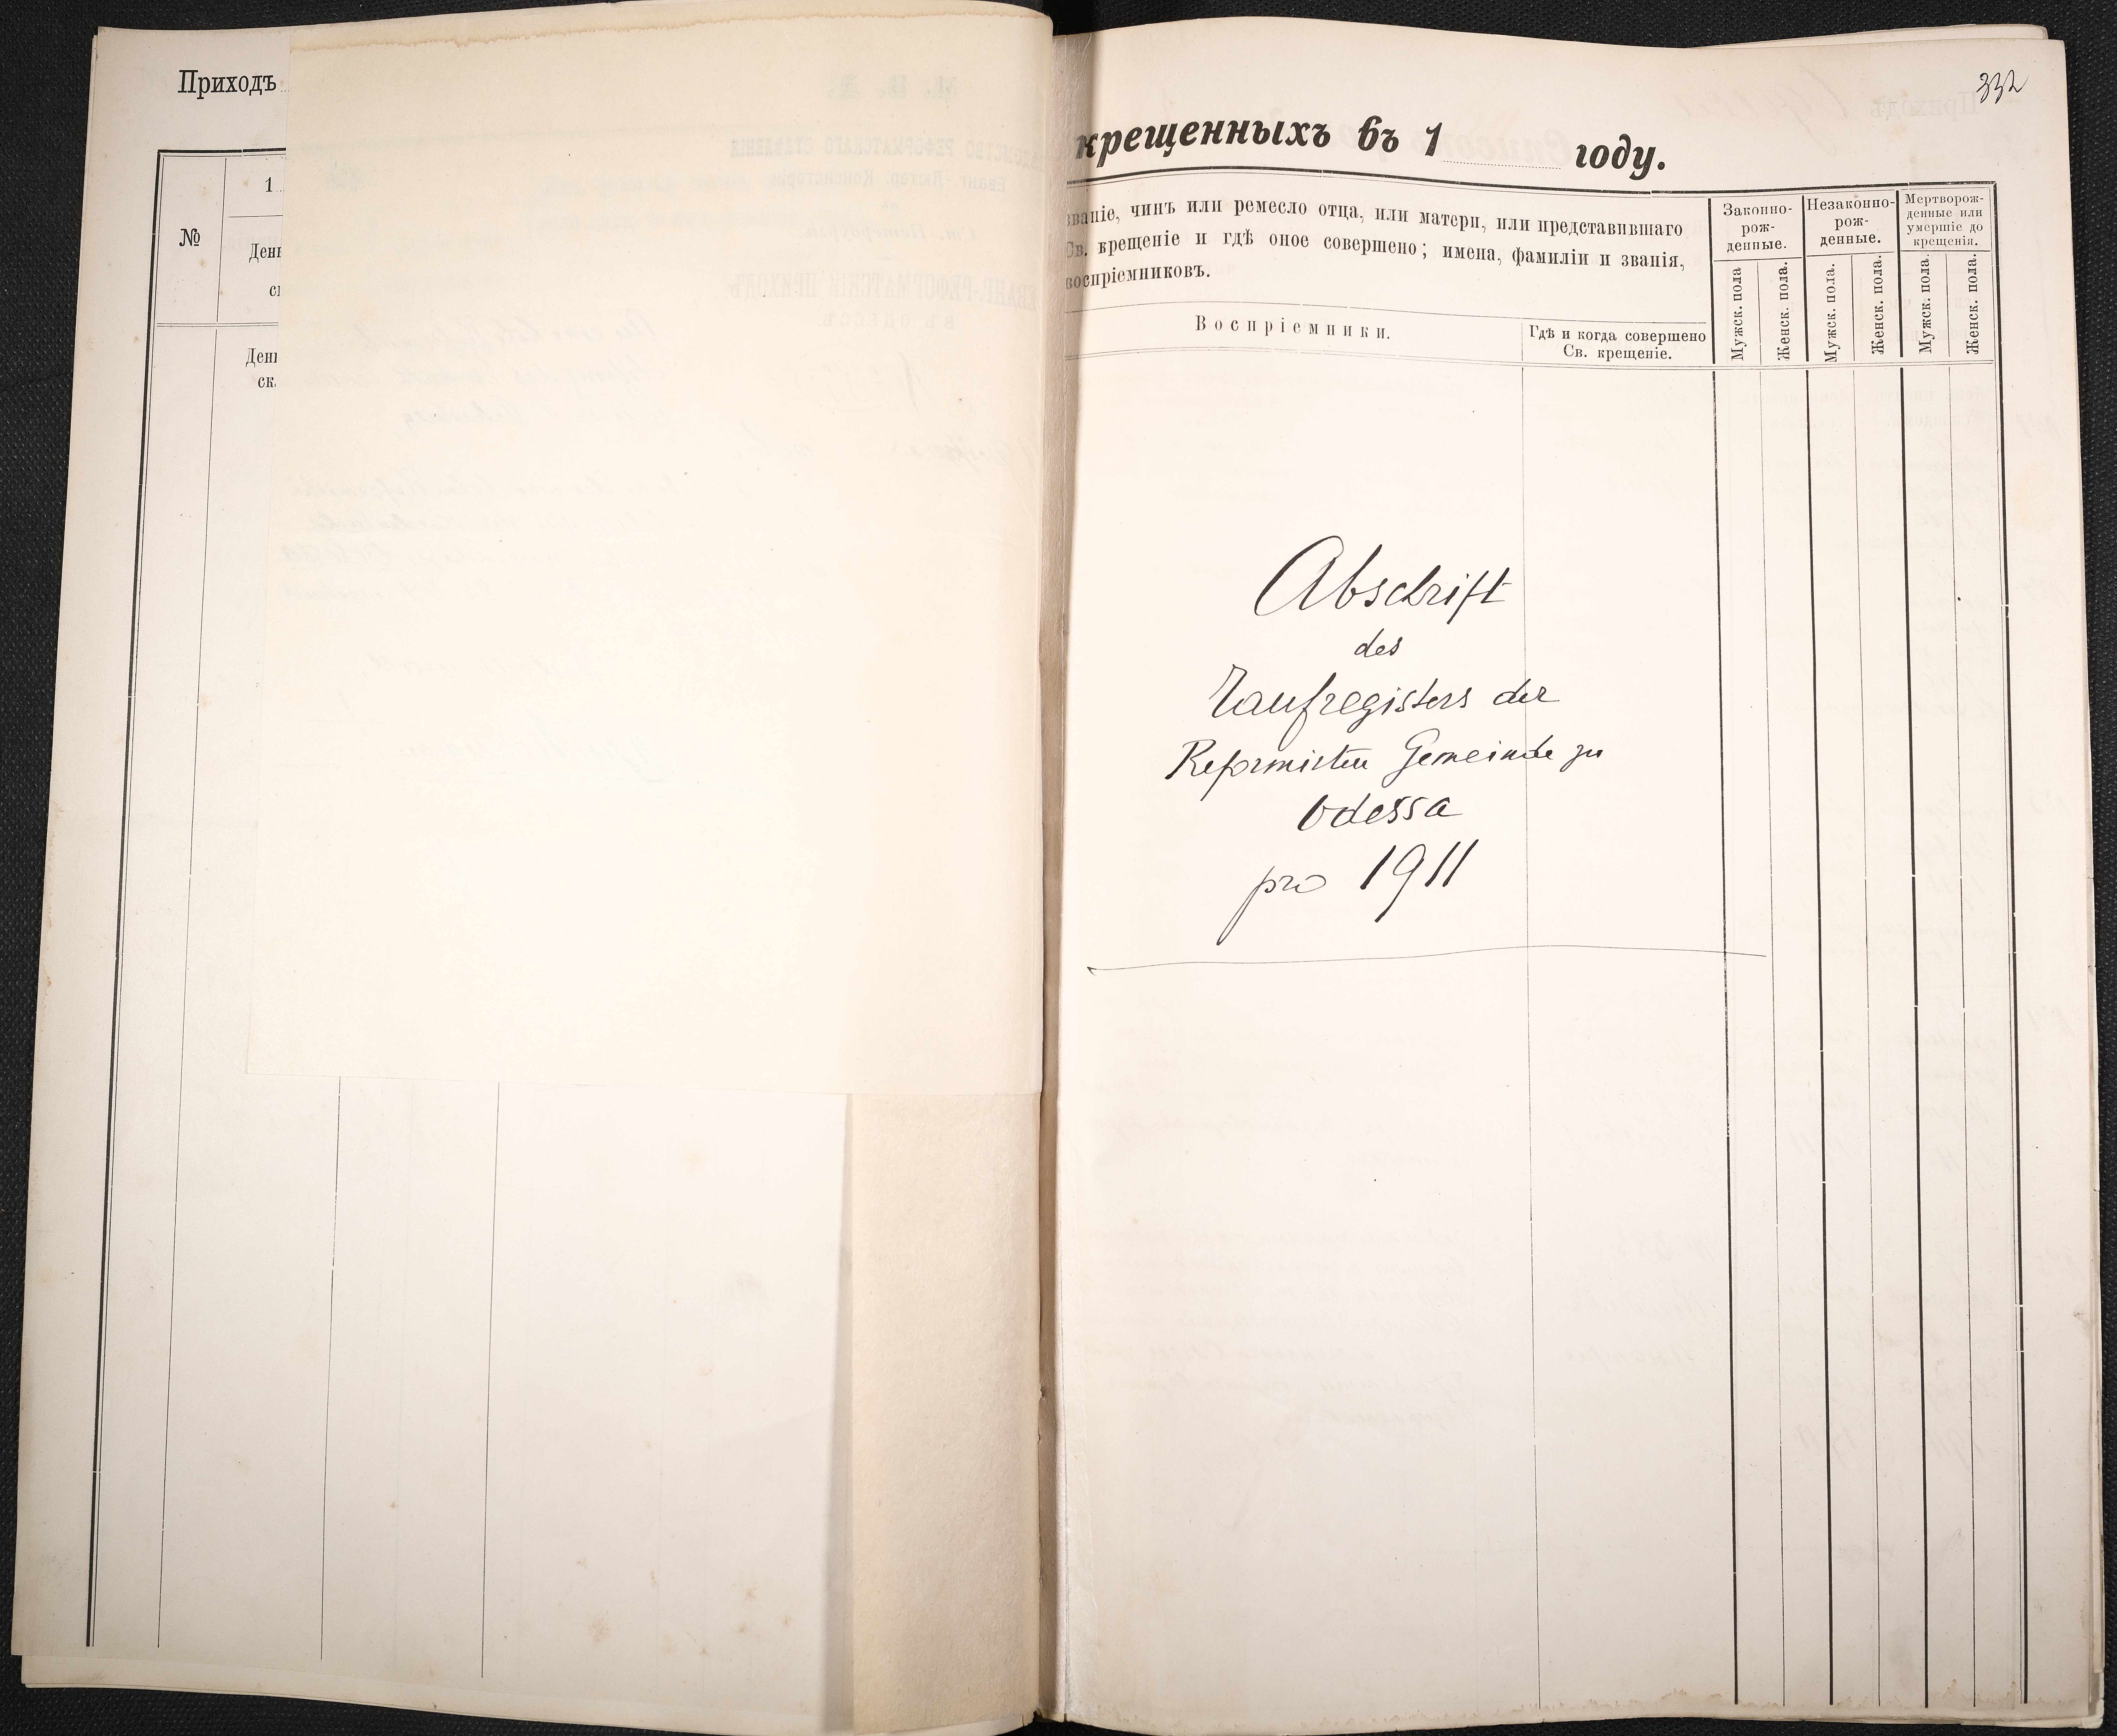 Приходъ
№
1.
332
крещенныхъ въ 1 году.
званіе, чинъ или ремесло отца, или матери, или представившаго
Св. крещеніе и гдѣ оное совершено; имена, фамиліи и званія,
воспріемниковъ.
Воспріемники.
Гдѣ и когда совершено
Св. крещеніе.
Законно-
рож-
денные.
Незаконно-
рож-
денные.
Мертворож-
денные или
умершіе до
крещенія.
Мужск. пола
Женск. пола.
Мужск. пола.
Женск. пола.
Мужск. пола.
Женск. пола.
Abschrift
des
Taufregisters der
Reformirten Gemeinde zu
Odessa
pro 1911